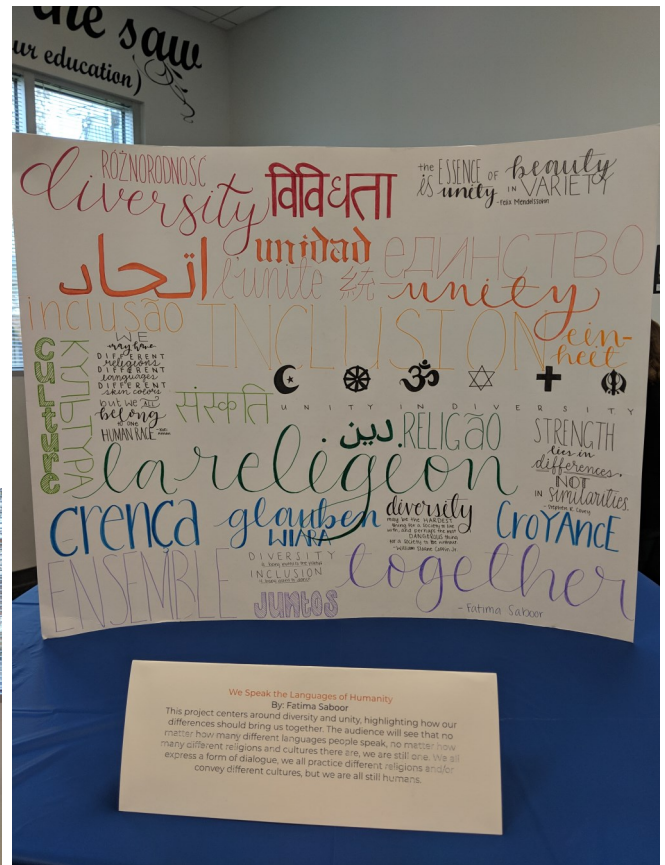 the saw
ur education)
RÓŻNORODNOŚĆ
diversity
विविधता
the ESSENCE OF beauty
is unity IN VARIETY
-Felix Mendelssohn
اتحاد
unidad
l'unité
統一
единство
unity
inclusão
INCLUSION
ein-
heit
culture
КУЛЬТУРА
WE
may have
DIFFERENT
religions
DIFFERENT
languages
DIFFERENT
skin colors
but we ALL
belong
to one
HUMAN RACE
संस्कृति
UNITY IN DIVERSITY
دين
RELIGÃO
STRENGTH
lies in
differences,
NOT
IN similarities.
-Stephen R. Covey
la religion
crença
glauben
WIARA
diversity
may be the HARDEST
thing for a society to live
with, and perhaps the most
DANGEROUS thing
for a society to be without.
-William Sloane Coffin Jr.
CroYAncE
ENSEMBLE
DIVERSITY
is being invited to the party
INCLUSION
is being asked to dance
juntos
together
- Fatima Saboor
We Speak the Languages of Humanity
By: Fatima Saboor
This project centers around diversity and unity, highlighting how our
differences should bring us together. The audience will see that no
matter how many different languages people speak, no matter how
many different religions and cultures there are, we are still one. We all
express a form of dialogue, we all practice different religions and/or
convey different cultures, but we are all still humans.